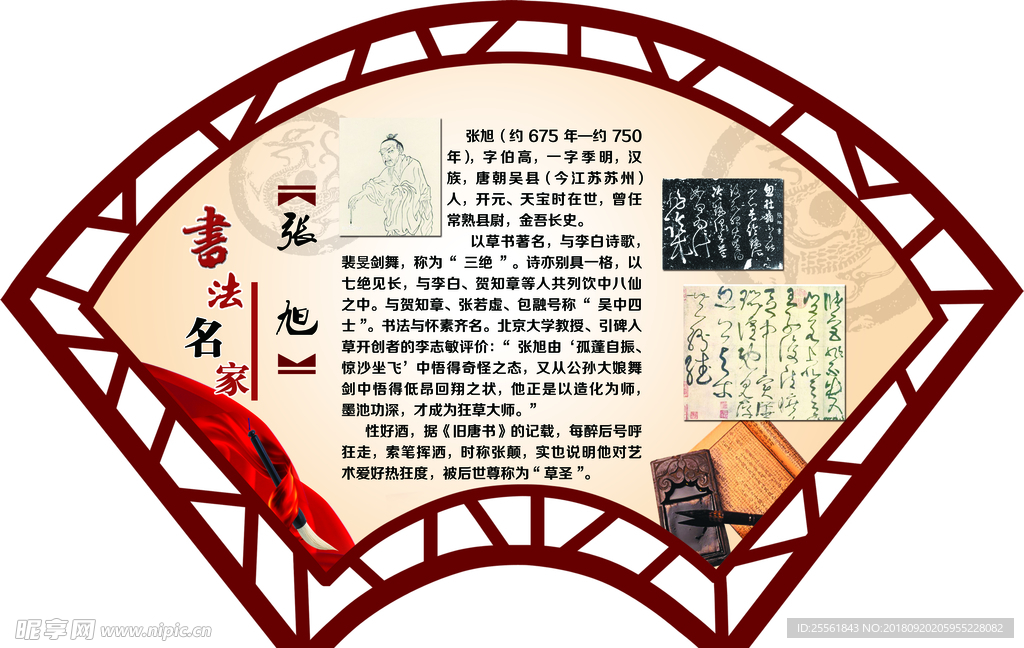 書法名家
【张旭】
张旭（约 675 年—约 750
年），字伯高，一字季明，汉
族，唐朝吴县（今江苏苏州）
人，开元、天宝时在世，曾任
常熟县尉，金吾长史。
以草书著名，与李白诗歌，
裴旻剑舞，称为“ 三绝 ”。诗亦别具一格，以
七绝见长，与李白、贺知章等人共列饮中八仙
之中。与贺知章、张若虚、包融号称“ 吴中四
士 ”。书法与怀素齐名。北京大学教授、引碑入
草开创者的李志敏评价：“ 张旭由‘孤蓬自振、
惊沙坐飞’中悟得奇怪之态，又从公孙大娘舞
剑中悟得低昂回翔之状，他正是以造化为师，
墨池功深，才成为狂草大师。”
性好酒，据《旧唐书》的记载，每醉后号呼
狂走，索笔挥洒，时称张颠，实也说明他对艺
术爱好热狂度，被后世尊称为“ 草圣 ”。
昵享网 www.nipic.cn
ID:25561843 NO:20180920205955228082